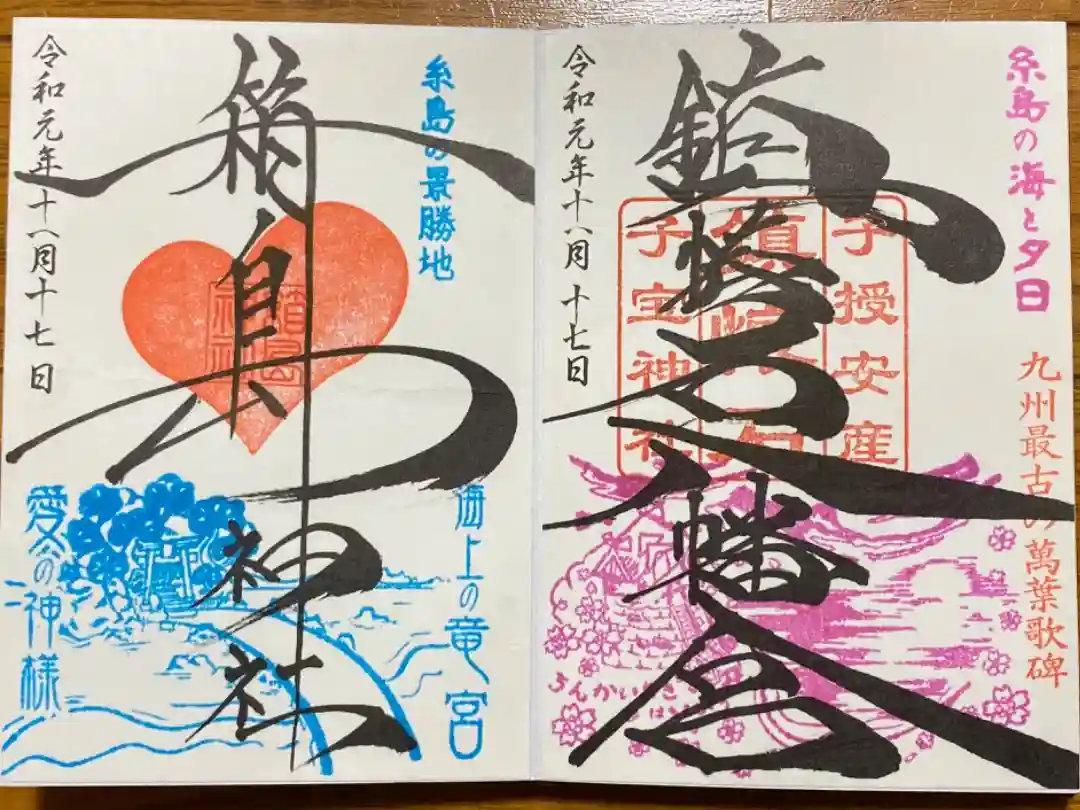 糸島の海と夕日
九州最古の萬葉歌碑
鎮懐石八幡宮
子授安産
子宝神社
令和元年十一月十七日
糸島の景勝地
海上の竜宮
箱島神社
箱島
神社
愛の神様
令和元年十一月十七日